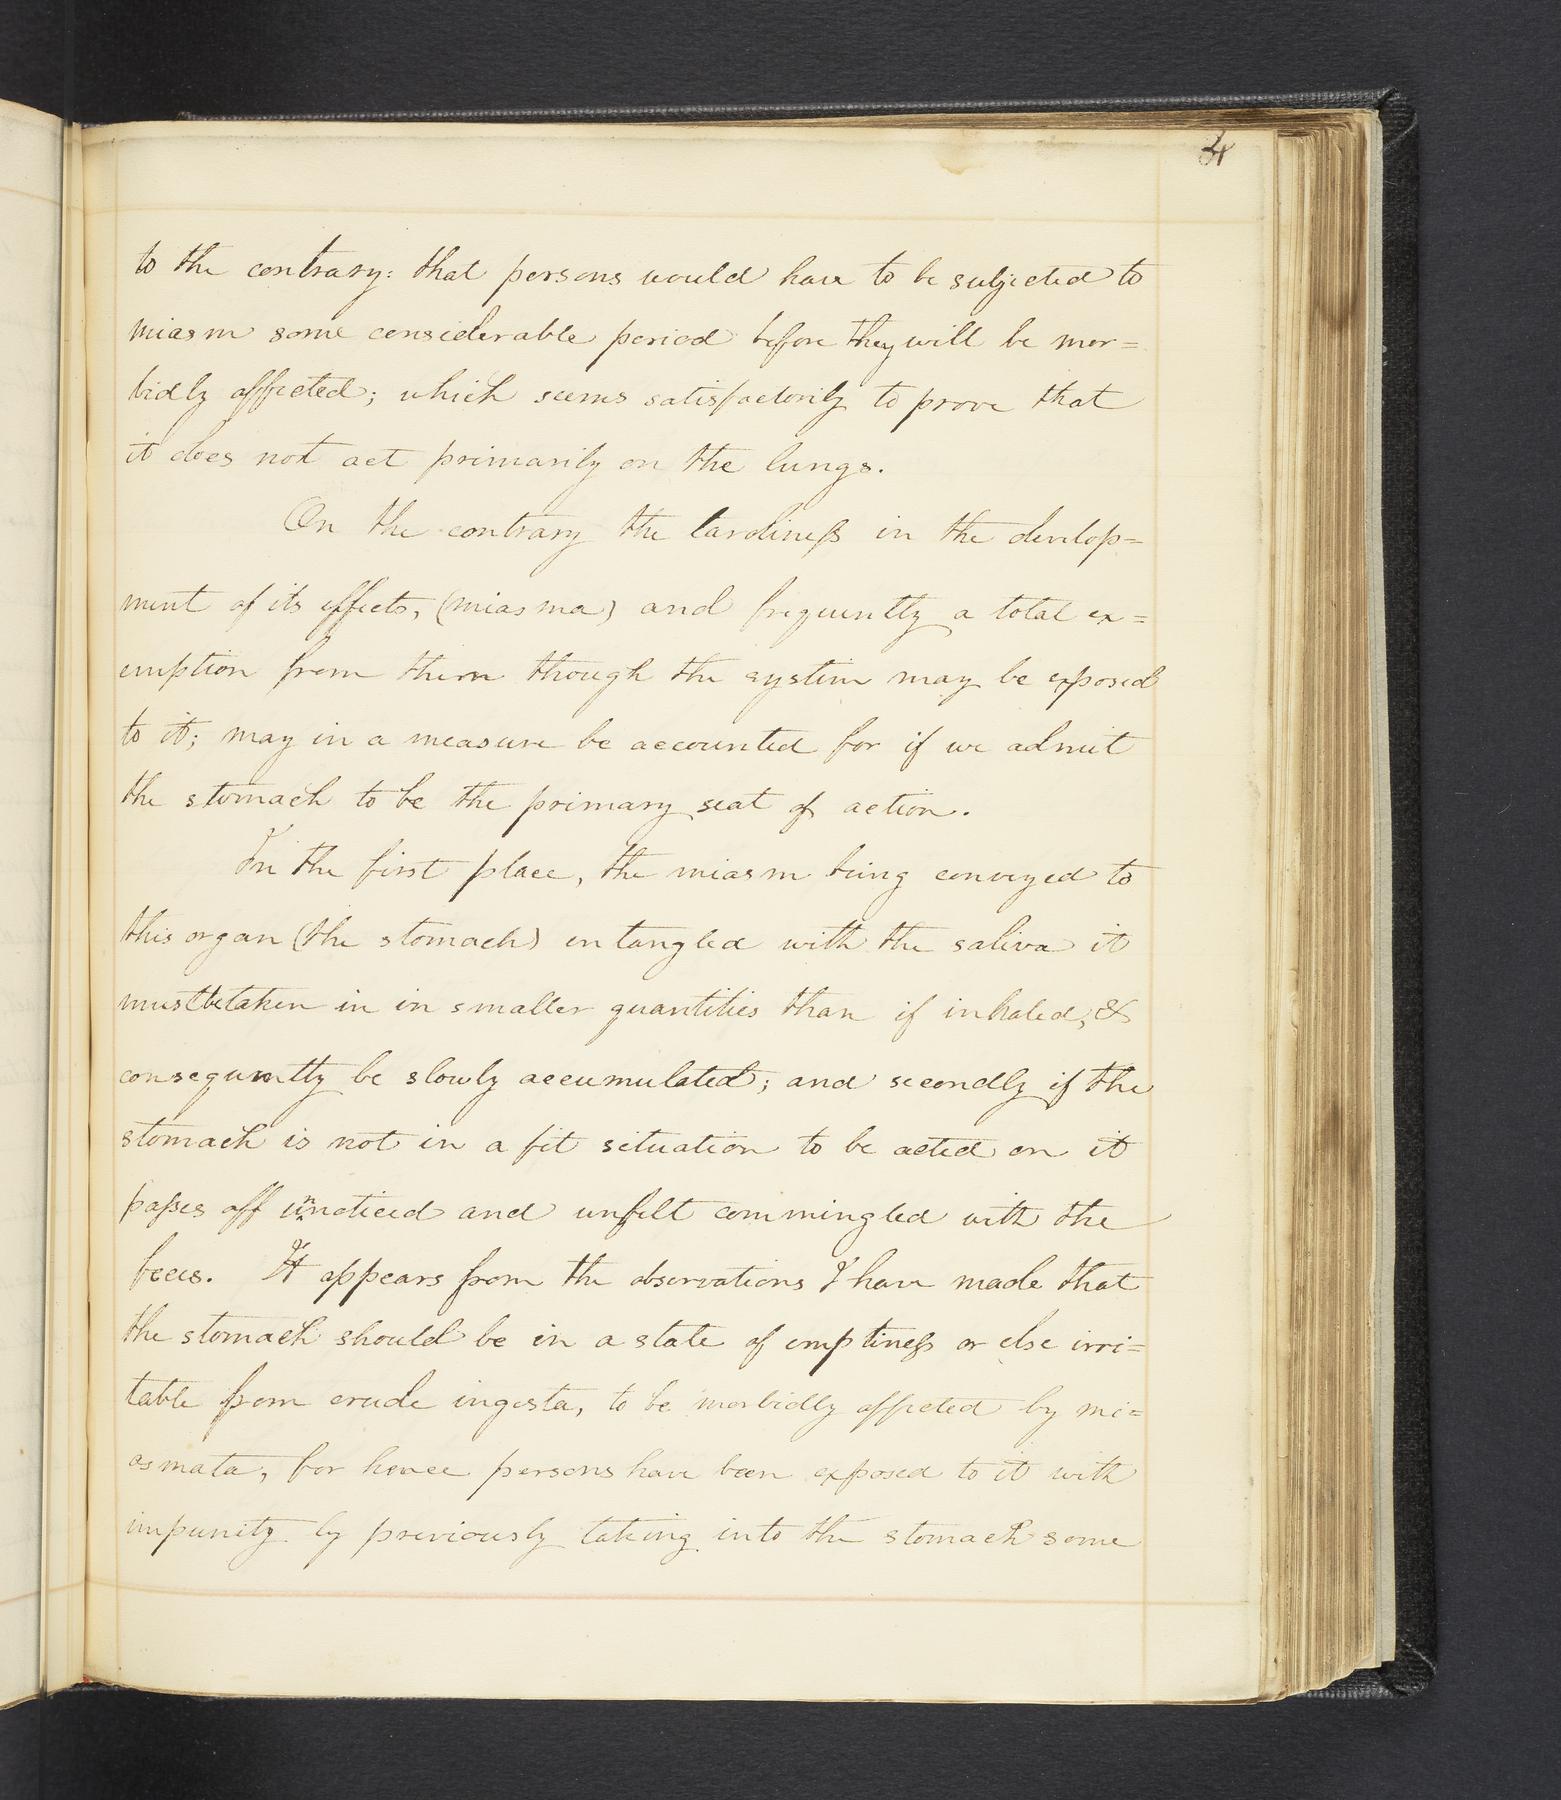 4
to the contrary: that persons would have to be subjected to
miasm some considerable period before they will be mor=
bidly affected; which seems satisfactorily to prove that
it does not act primarily on the lungs.
On the contrary the tardiness in the develop=
ment of its effects, (miasma) and frequently a total ex=
emption from them though the system may be exposed
to it; may in a measure be accounted for if we admit
the stomach to be the primary seat of action.
In the first place, the miasm being conveyed to
this organ (the stomach) entangled with the saliva it
must be taken in in smaller quantities than if inhaled, &
consequently be slowly accumulated; and secondly if the
stomach is not in a fit situation to be acted on it
passes off unnoticed and unfelt commingled with the
feces. It appears from the observations I have made that
the stomach should be in a state of emptiness or else irri=
table from crude ingesta, to be morbidly affected by mi=
asmata, for hence persons have been exposed to it with
impunity by previously taking into the stomach some